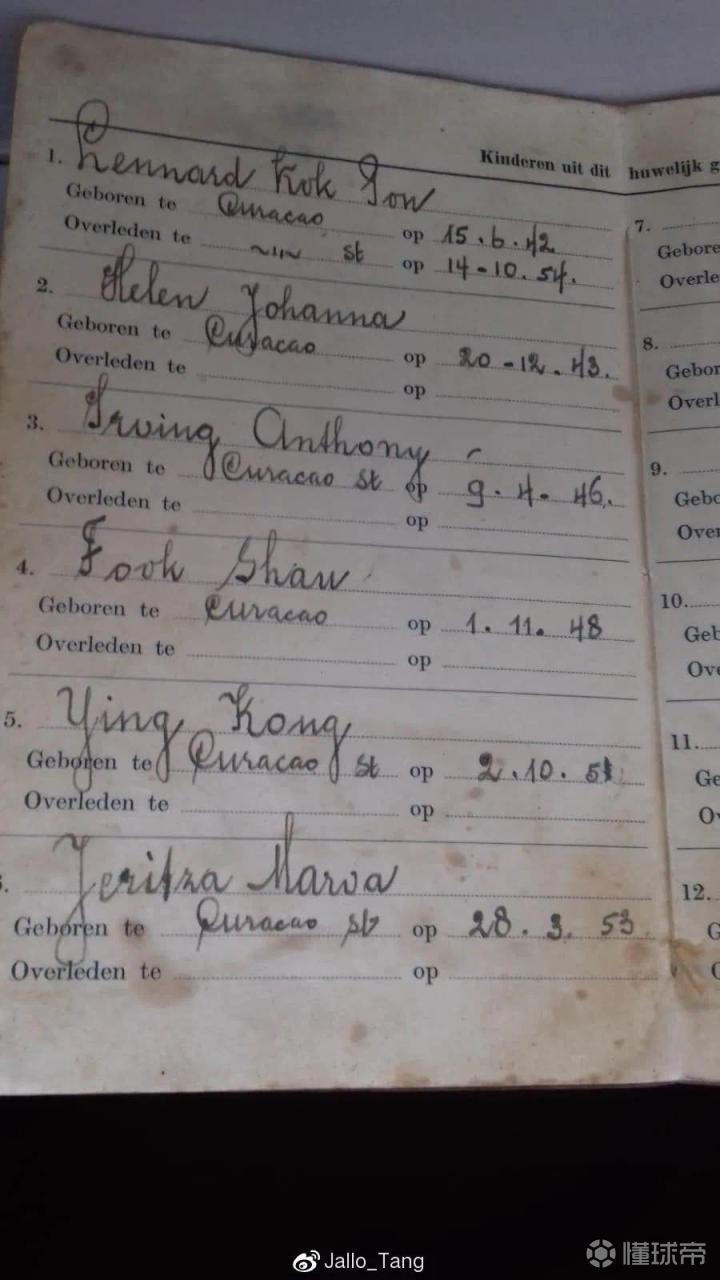 Kinderen uit dit huwelijk g
1. Lennard Kok Son
Geboren te Curacao op 15.6.42
Overleden te ~〃~ st op 14-10.54.
2. Helen Johanna
Geboren te Curacao op 20-12.43.
Overleden te op
3. Irving Anthony
Geboren te Curacao st op 9.4-46.
Overleden te op
4. Fook Shau
Geboren te Curacao op 1.11.48
Overleden te op
5. Ying Kong
Geboren te Curacao st op 2.10.51
Overleden te op
Jeritza Marva
Geboren te Curacao st op 28.3.53
Overleden te op
7.
Gebore
Overle
8.
Gebor
Overl
9.
Gebo
Over
10.
Geb
Ov
11.
Ge
Ov
12.
G
O
Jallo_Tang
懂球帝